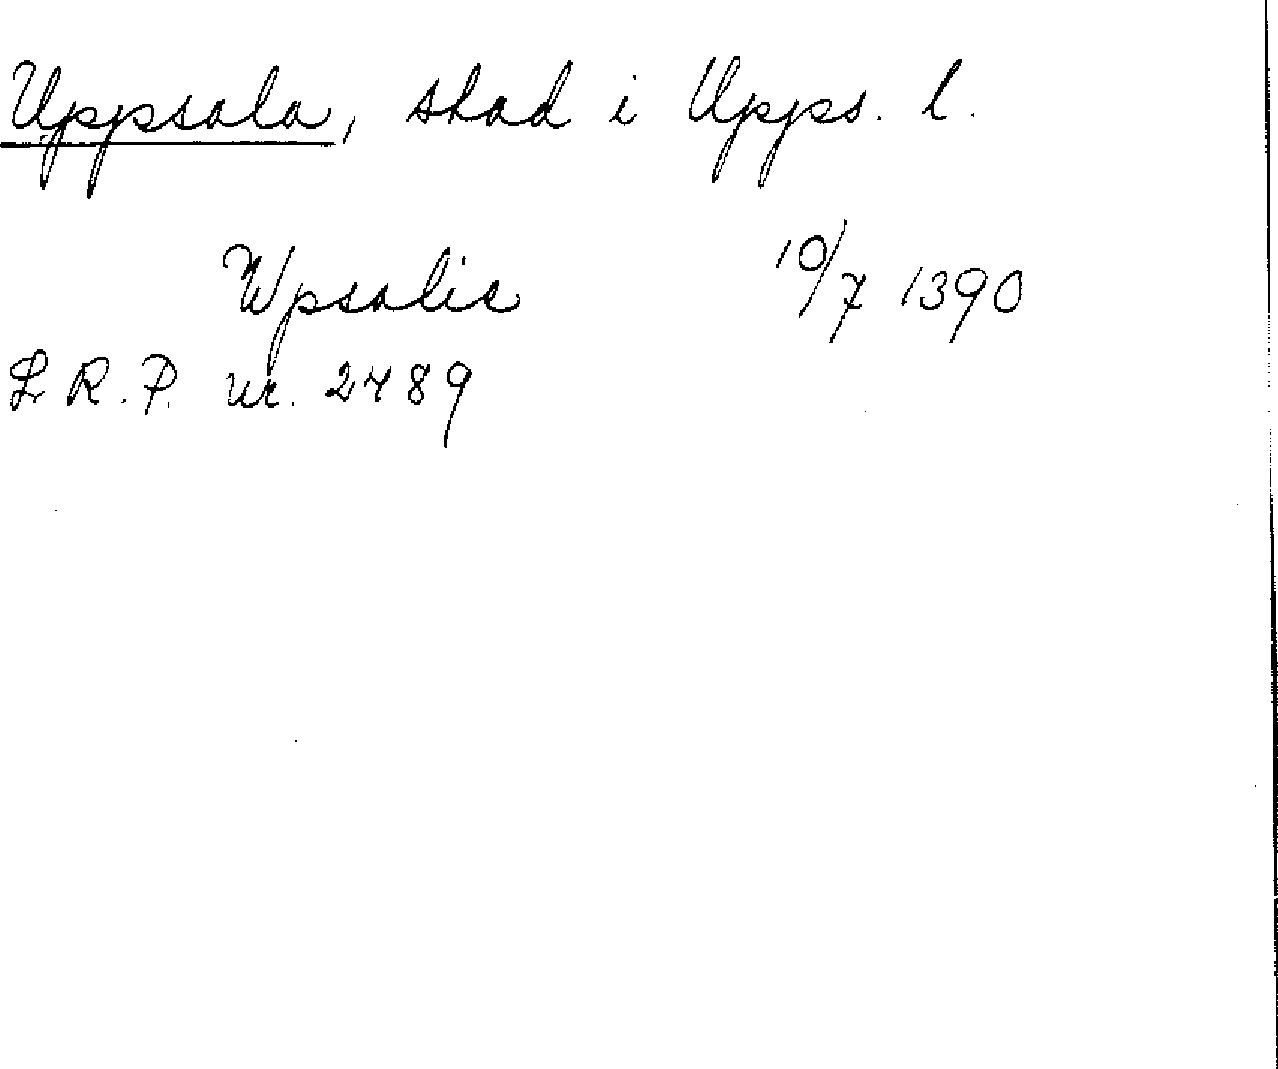 Uppsala, stad i Upps. l.
Wpsalis 10/7 1390
S.R.P. nr. 2489